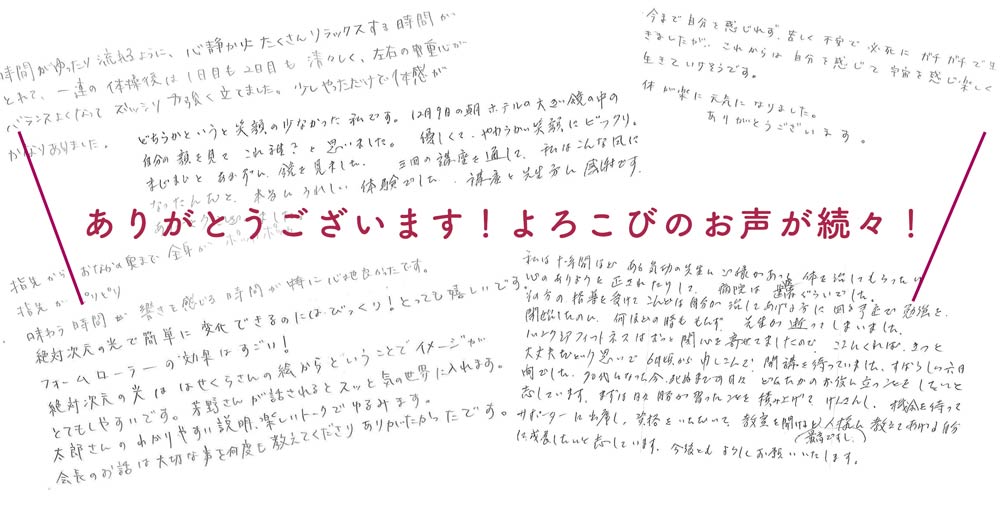 時間がゆったり流れるように、心静かにたくさんリラックスする時間が
とれて、一連の体操後は1日目も2日目も清々しく、左右の重心が
バランスよくなって ズッシリ力強く立てました。少しやっただけで体感が
かなりありました。
どちらかというと笑顔の少なかった私です。12月9日の朝ホテルの大きい鏡の中の
自分の顔を見て これ誰?と思いました。優しくて、やわらかい笑顔にビックリ。
まじまじと 鏡を見ました。三回の講座を通して、私はこんな風に
なったんだと、本当にうれしい体験でした。講座と先生方に感謝です。
今まで自分を感じれず、苦しく不安で必死にガチガチで生
きましたが、これからは自分を感じて宇宙を感じ楽しく
生きていけそうです。
体が楽に元気になりました。
ありがとうございます。
ありがとうございます!よろこびのお声が続々!
指先から おなかの奥まで 全身が
指先が ピリピリ
味わう時間が 響きを感じる時間が特に心地良かったです。
絶対次元の光で簡単に変化できるのにはびっくり!とっても嬉しいです。
フォームローラーの効果はすごい!
絶対次元の光ははせくらさんの絵からということでイメージが
とてもしやすいです。芳野さんが話されるとスッと気の世界に入れます。
太郎さんのわかりやすい説明、楽しいトークでゆるみます。
会長のお話は大切な事を何度も教えてくださりありがたかったです。
私は十年間ほど ある気功の先生に ご縁があって 体を治してもらったり
心のありようを正されたりして、病院は ぐらいでした。
の指導を受けて こんどは自分が治してあげる方に回る予定で勉強を
開始したのに、何ほどの時ももたず、先生が逝ってしまいました。
フィットネスはずっと関心を寄せてましたので ここんくれば、きっと
大丈夫という思いで6月頃から申しこんで 開講を待っていました。すばらしい六日
間でした。70代になった今、死ぬまでの日々 どなたかのお役に立つことをしたいと
志しています。まずは日々 階が習ったことを積み上げて けんさんし、機会を待って
サポーターに出席し、資格をいただいて、教室を開ける(最高ですし)人様に教えてあげる自分
に成長したいと志しています。今後ともよろしくお願いいたします。